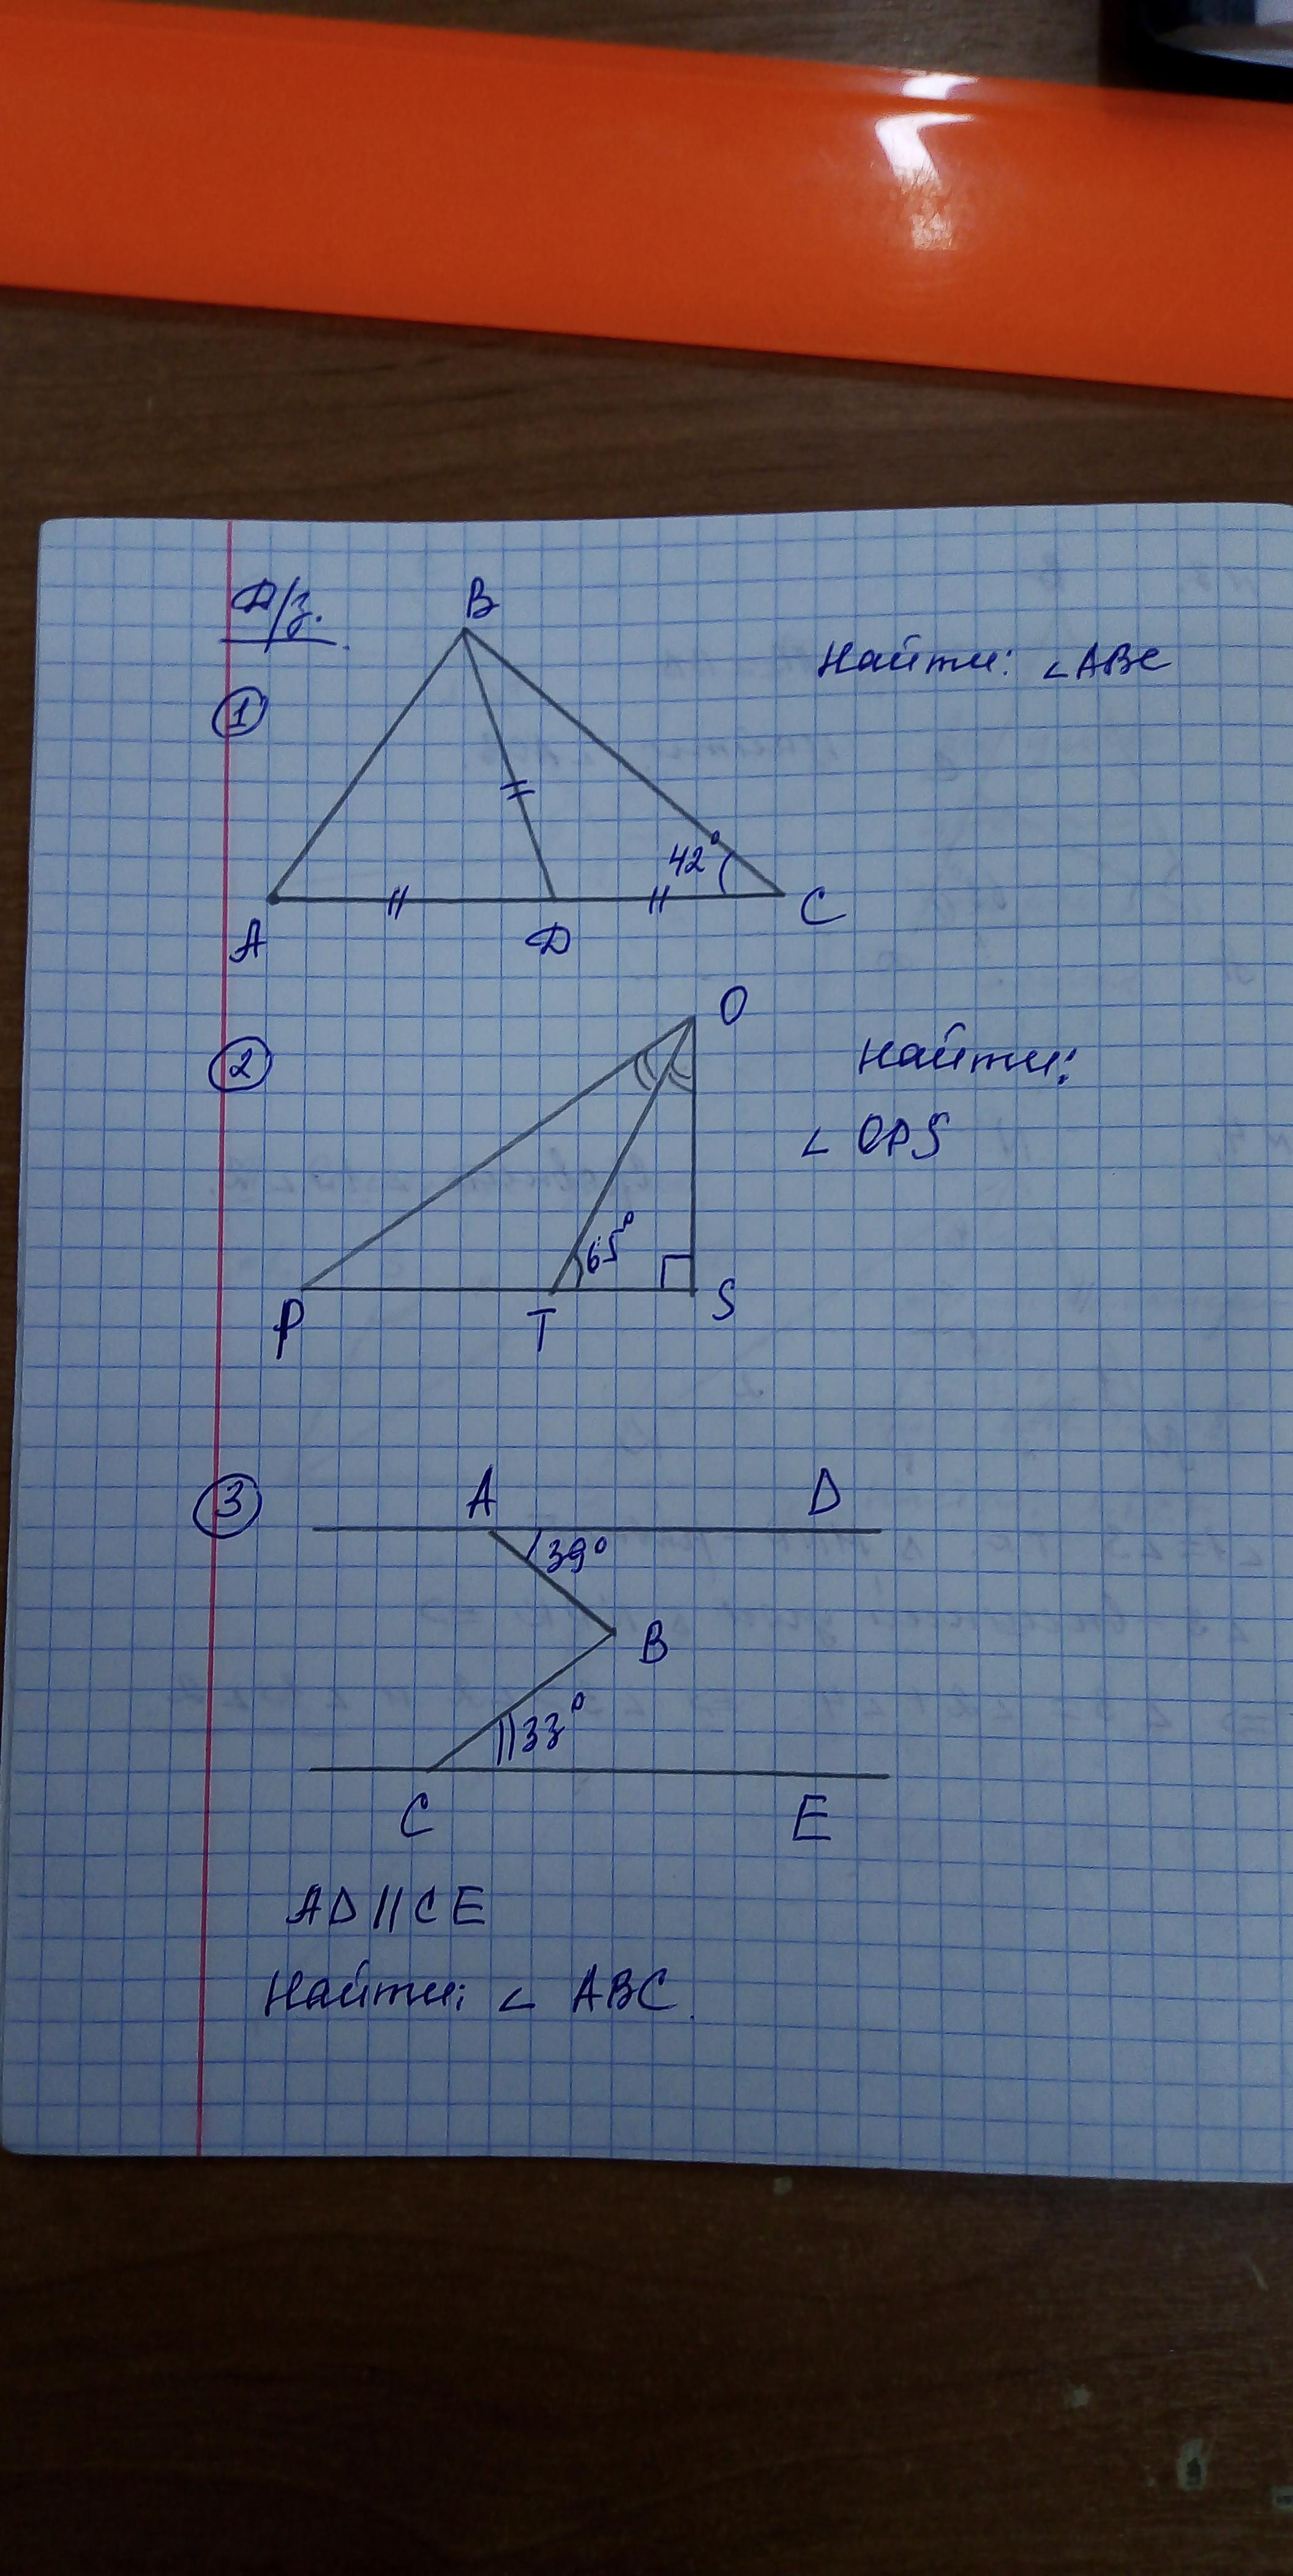 Д/з.
B
Найти: ∠ABC
1
42°
A
D
C
O
2
Найти:
∠ OPS
65°
P
T
S
3
A
D
39°
B
33°
C
E
AD || CE
Найти: ∠ ABC.